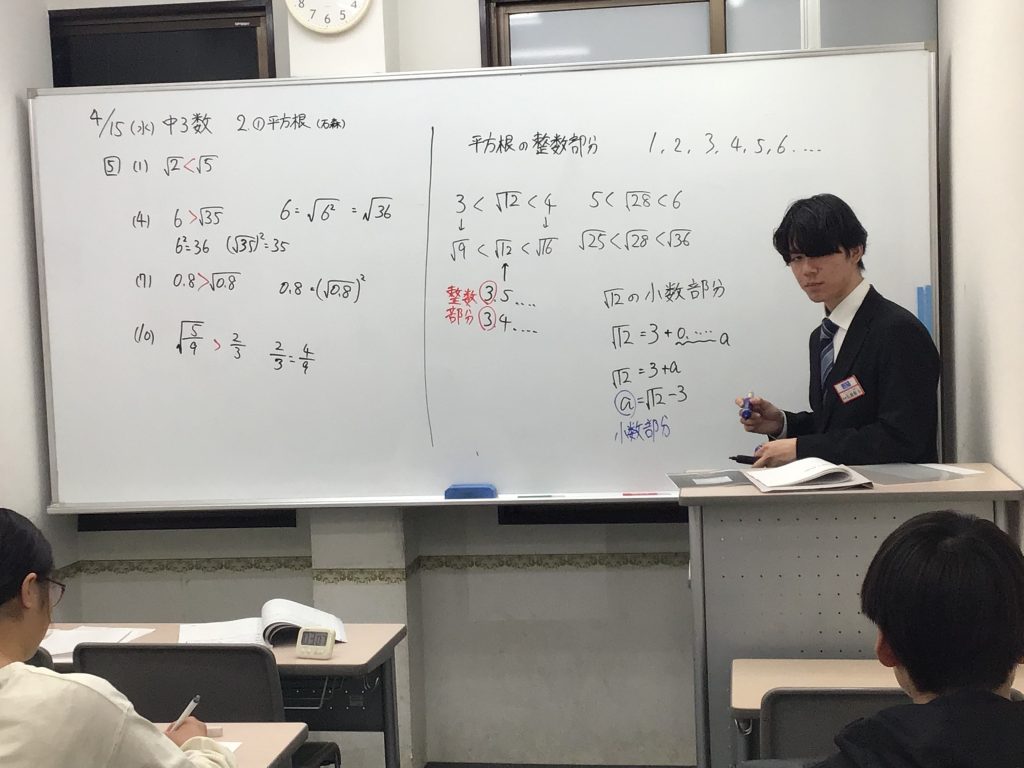 4/15(水) 中3数 2.①平方根
5 (1) √2<√5
(4) 6>√35 6=√6² =√36
6²=36 (√35)²=35
(7) 0.8>√0.8 0.8・(√0.8)²
(10) √5/9 > 2/3 2/3=4/9
平方根の整数部分 1, 2, 3, 4, 5, 6....
3<√12<4 5<√28<6
↓ ↓
√9<√12<√16 √25<√28<√36
↑
整数 3.5....
部分 3.4....
√12の小数部分
√12=3+0.....a
√12=3+a
a=√12-3
小数部分
8 7 6 5 4